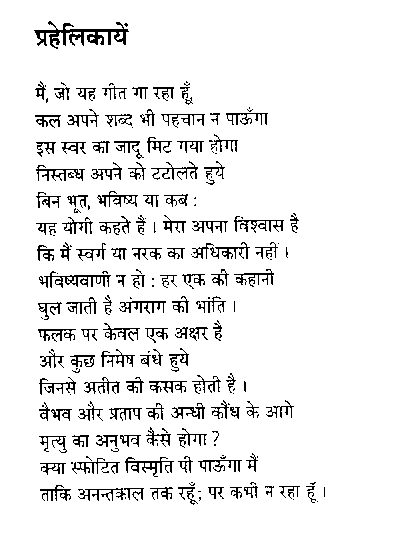 प्रहेलिकायें
मैं, जो यह गीत गा रहा हूँ,
कल अपने शब्द भी पहचान न पाऊँगा
इस स्वर का जादू मिट गया होगा
निस्तब्ध अपने को टटोलते हुये
बिन भूत, भविष्य या कब :
यह योगी कहते हैं । मेरा अपना विश्वास है
कि मैं स्वर्ग या नरक का अधिकारी नहीं ।
भविष्यवाणी न हो : हर एक की कहानी
घुल जाती है अंगराग की भांति ।
फलक पर केवल एक अक्षर है
और कुछ निमेष बंधे हुये
जिनसे अतीत की कसक होती है ।
वैभव और प्रताप की अन्धी कौंध के आगे
मृत्यु का अनुभव कैसे होगा ?
क्या स्फोटित विस्मृति पी पाऊँगा मैं
ताकि अनन्तकाल तक रहूँ; पर कभी न रहा हूँ ।